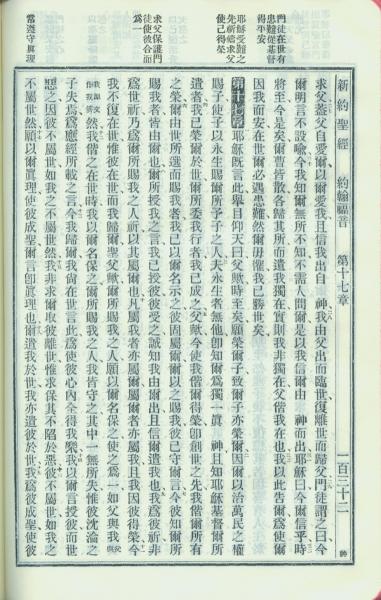 新約聖經 約翰福音 第十七章 一百三十二
門徒在世有
患難從基督
得平安
耶穌受難之
先祈禱求父
使己得榮
求父保護門
徒使彼合而
爲一
常遵守眞理
求父蓋父自愛爾以爾愛我且信我出自 神我由父出而臨世復離世而歸父門徒謂之曰今
爾明言不設喻今我知爾無所不知不需人問爾是以我信爾由 神而出耶穌曰今爾信乎時
將至今是矣爾曹皆散各歸其所而遺我獨在實則我非獨在父偕我在也我以此告爾爲使爾
因我而安在世爾必遇患難然爾毋懼我已勝世矣
第十七章耶穌既言此舉目仰天曰父歟時至矣願榮爾子致爾子亦榮爾因爾以治萬民之權
賜子使子以永生賜爾所予子之人夫永生者無他卽知爾爲獨一眞 神且知耶穌基督爾所
遣者我已榮爾於世爾所委我行者我已成之父歟今使我偕爾得榮卽創世之先我偕爾所有
之榮爾由世所選而賜我者我已以爾名示之彼固屬爾爾以之賜我彼已守爾言今彼知爾所
賜我者皆由爾也爾所授我之言我已授彼彼受之誠知我由爾出且信爾遣我也我爲彼祈非
爲世祈乃爲爾所賜我之人祈以其屬爾也凡屬我者亦屬爾屬爾者亦屬我且我因彼得榮今
我不復在世惟彼在世而我歸爾聖父歟爾所賜我之人願以爾名保之使之爲一如父與我
然我偕之在世時我以爾名保之爾所賜我之人我皆守之其中一無所失惟彼沈淪之
子失焉爲應經所載之言今我歸爾我尙在世言此爲使彼心內全得我樂我以爾言授彼而世
惡之因彼不屬世如我之不屬世然我非求爾取彼離世惟求保其不陷於惡彼不屬世如我之
不屬世然願以爾眞理使彼成聖爾言卽眞理也爾遣我於世我亦遣彼於世我爲彼成聖使彼